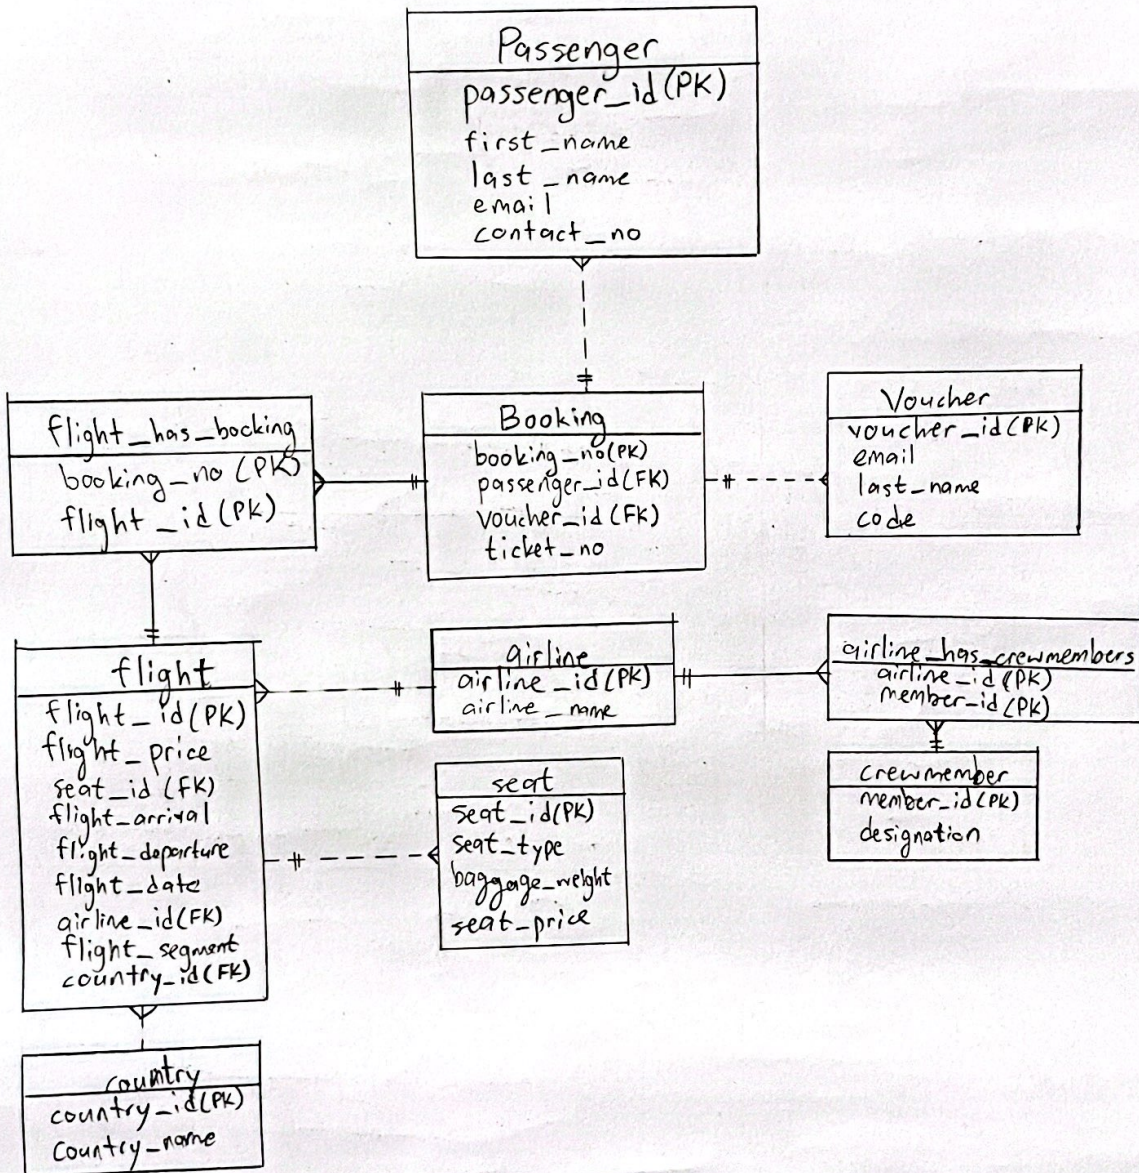 Passenger
passenger_id(PK)
first_name
last_name
email
contact_no
flight_has_booking
booking_no(PK)
flight_id(PK)
Booking
booking_no(PK)
passenger_id(FK)
voucher_id(FK)
ticket_no
Voucher
voucher_id(PK)
email
last_name
code
flight
flight_id(PK)
flight_price
seat_id(FK)
flight_arrival
flight_departure
flight_date
airline_id(FK)
flight_segment
country_id(FK)
airline
airline_id(PK)
airline_name
airline_has_crewmembers
airline_id(PK)
member_id(PK)
seat
seat_id(PK)
seat_type
baggage_weight
seat_price
crewmember
member_id(PK)
designation
country
country_id(PK)
country_name